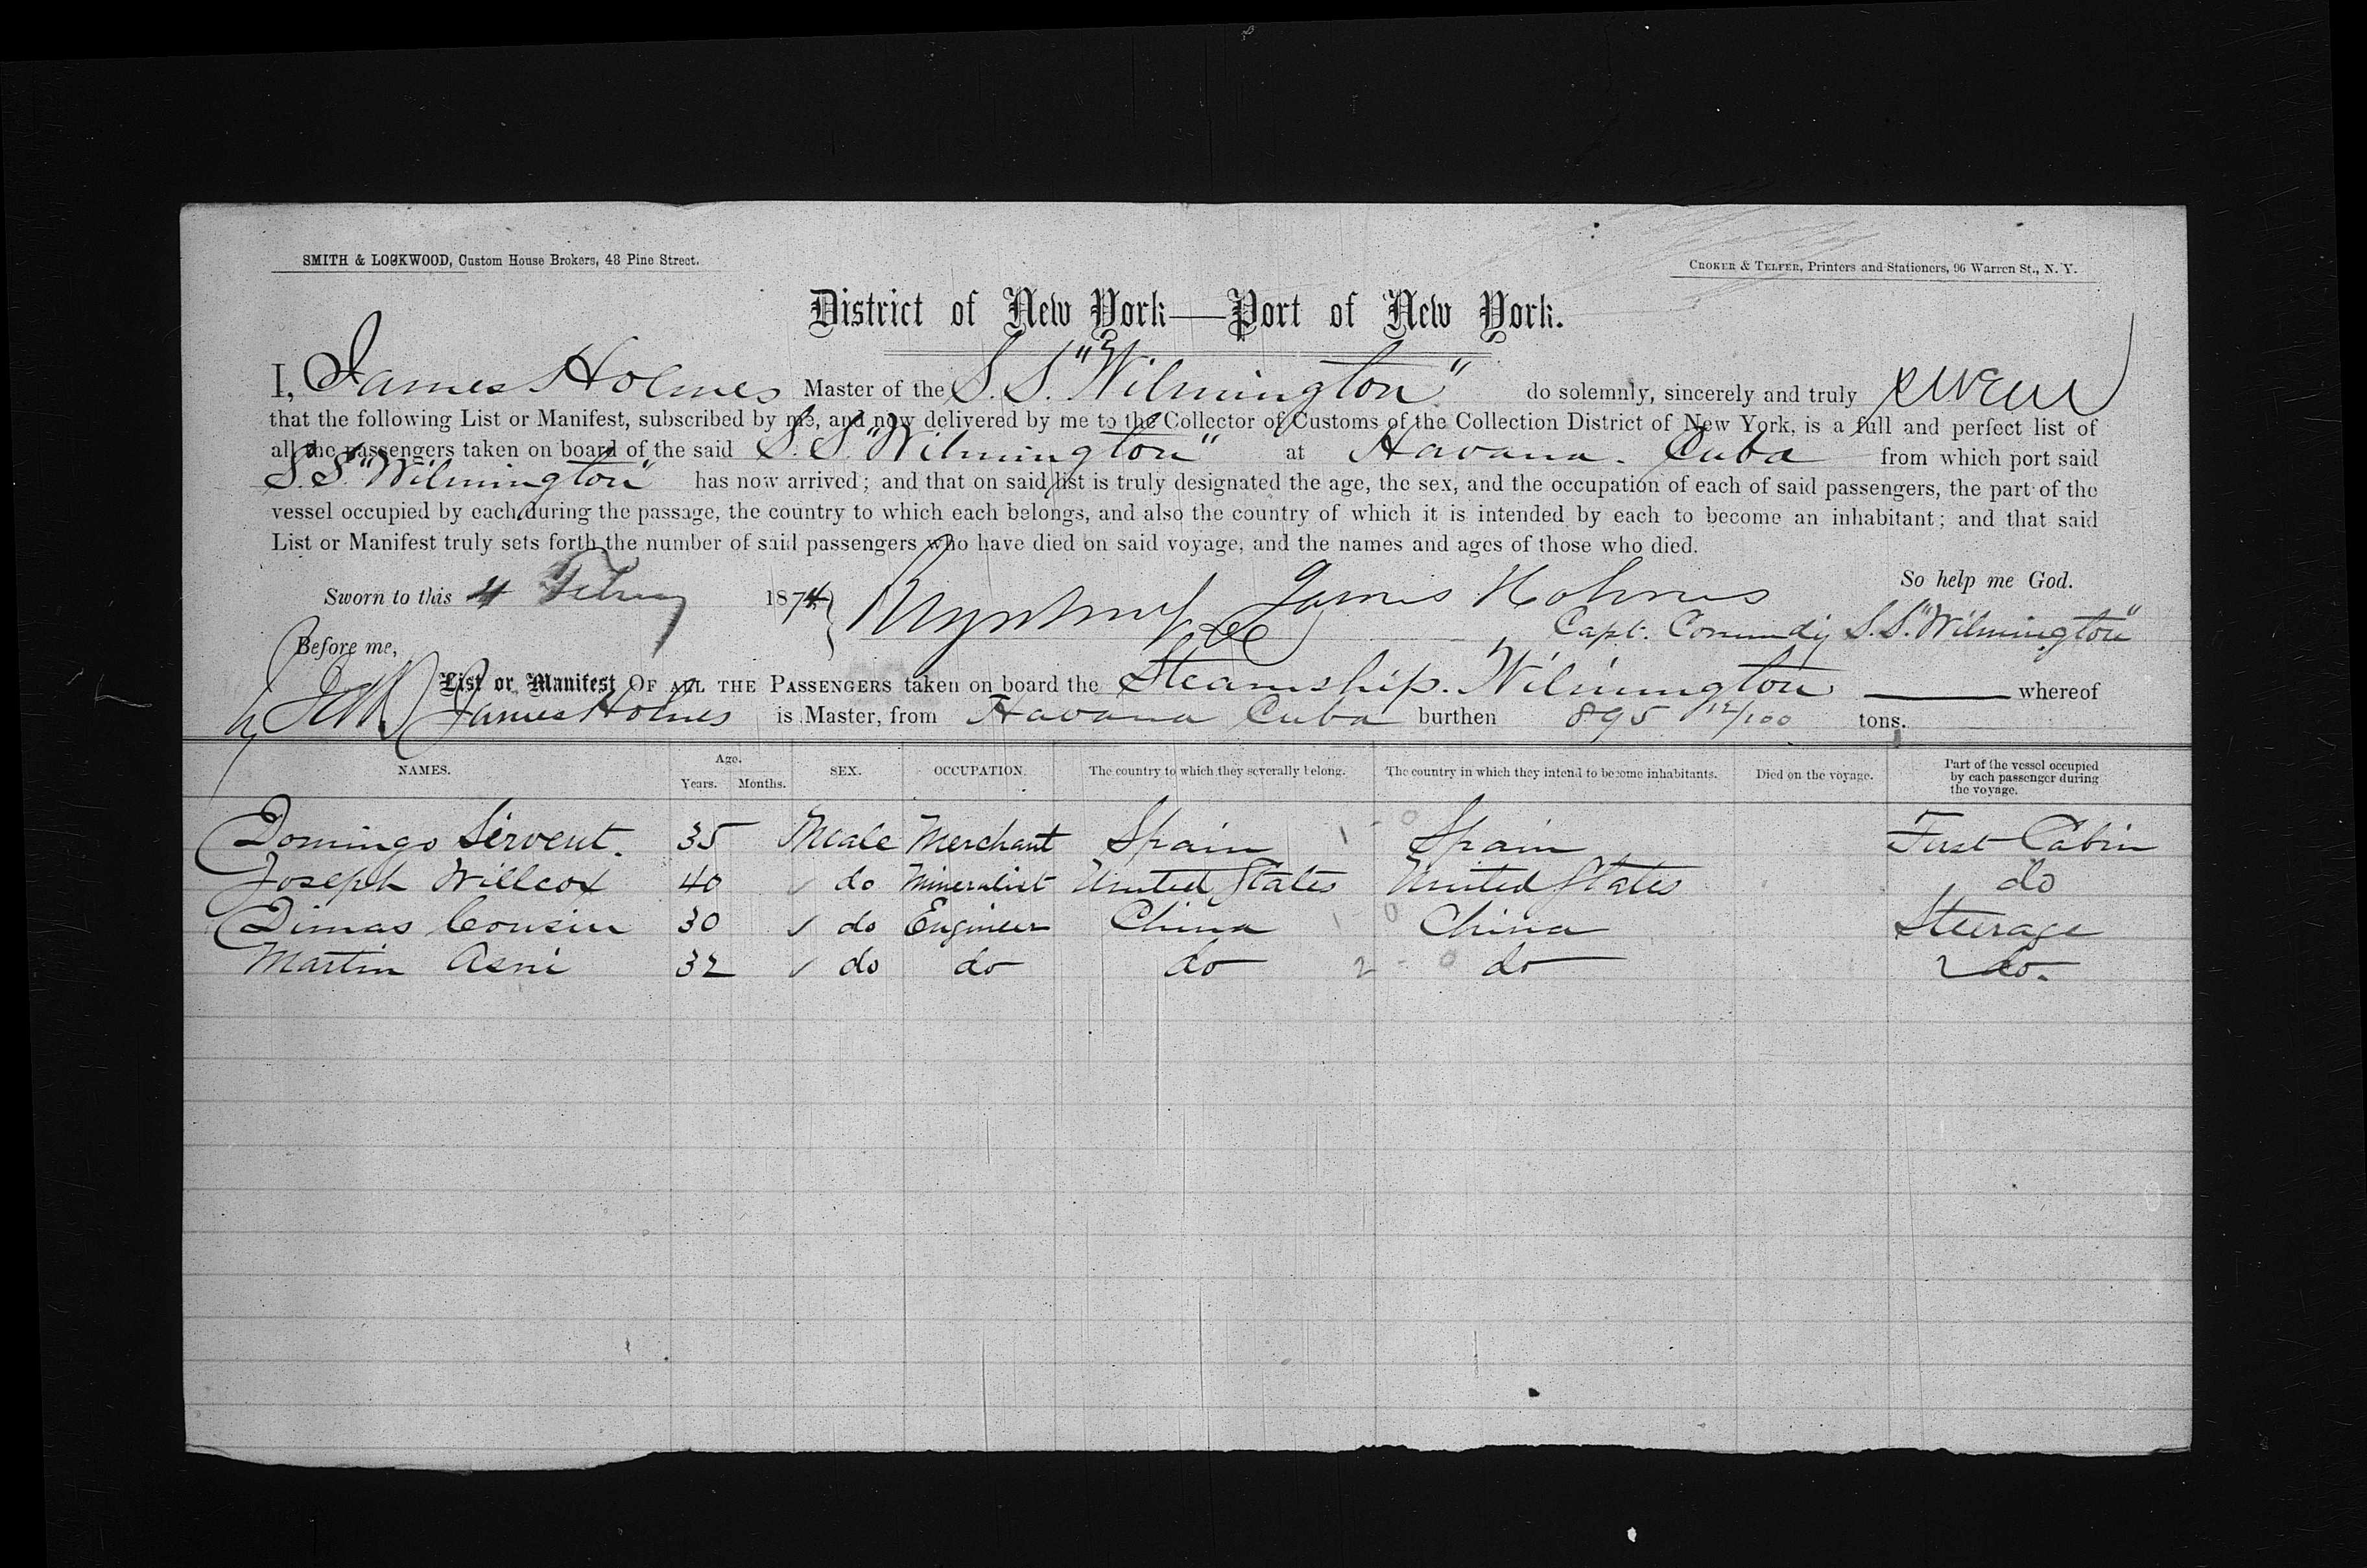 SMITH & LOCKWOOD, Custom House Brokers, 48 Pine Street.
CROKER & TELFER, Printers and Stationers, 96 Warren St., N. Y.
District of New York—Port of New York.
I, James Holmes Master of the S. S. "Wilmington" do solemnly, sincerely and truly swear
that the following List or Manifest, subscribed by me, and now delivered by me to the Collector of Customs of the Collection District of New York, is a full and perfect list of
all the passengers taken on board of the said S. S. "Wilmington" at Havana. Cuba from which port said
S. S. "Wilmington" has now arrived; and that on said list is truly designated the age, the sex, and the occupation of each of said passengers, the part of the
vessel occupied by each during the passage, the country to which each belongs, and also the country of which it is intended by each to become an inhabitant; and that said
List or Manifest truly sets forth the number of said passengers who have died on said voyage, and the names and ages of those who died.
So help me God.
Sworn to this 4 Febry 1874 James Holmes
Before me, Capt. S.S. "Wilmington"
List or Manifest OF ALL THE PASSENGERS taken on board the Steamship. Wilmington whereof
James Holmes is Master, from Havana Cuba burthen 895 12/100 tons.
NAMES. Age. Years. Months. SEX. OCCUPATION. The country to which they severally belong. The country in which they intend to become inhabitants. Died on the voyage. Part of the vessel occupied by each passenger during the voyage.
Domingo Servent. 35 Male Merchant Spain 1 - 0 Spain First Cabin
Joseph Willcox 40 do Mineralist United States United States do
Dimas Cousin 30 do Engineer China 1 - 0 China Steerage
Martin Asni 32 do do do 2 - 0 do do.